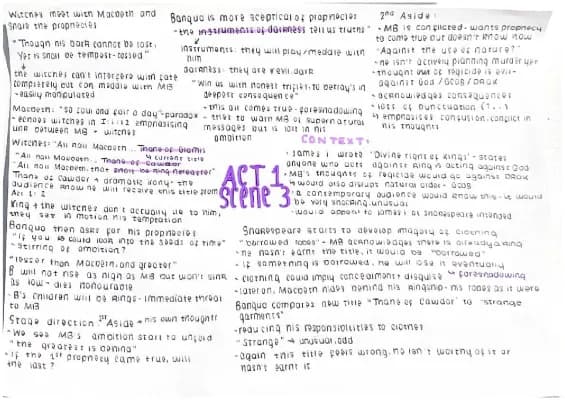 Witches meet with Macbeth and
share the prophecies
"Though his bark cannot be lost,
Yet it shall be tempest-tossed"
the witches can't interfere with fate
completely but can meddle with MB
-easily manipulated
Macbeth: "so foul and fair a day"-paradox
-echoes witches in I:i:12 emphasising
link between MB + witches
Witches: "All hail Macbeth... Thane of Glamis
↳ current title
"All hail Macbeth... Thane of Cawdor"
"All hail Macbeth, that shalt be king hereafter"
Thane of Cawdor → dramatic irony - the
audience know he will receive this title from
Act 1:2
King → the witches don't actually lie to him,
they set in motion his temptation
Banquo then asks for his prophecies
"If you can look into the seeds of time"
-stirring of ambition?
"lesser than Macbeth, and greater"
B will not rise as high as MB but won't sink
as low - dies honourable
-B's children will be kings - immediate threat
to MB
Stage direction: 1st Aside → his own thoughts
-We see MB's ambition start to unfold
"the greatest is behind"
-if the 1st prophecy came true, will
the last?
Banquo is more sceptical of prophecies
-"the instruments of darkness tell us truths"
instruments: they will play/meddle with
him
darkness: they are evil, dark
"Win us with honest trifles, to betray's in
deepest consequence"
-this all comes true - foreshadowing
-tries to warn MB of supernatural
messages but is lost in his
ambition
2nd Aside:
-MB is conflicted - wants prophecy
to come true but doesn't know how
"Against the use of nature?"
-he isn't actively planning murder yet
-thought of regicide is evil -
against God / GCOB / DROK
-acknowledges consequences
-lots of punctuation (?,.)
↳ emphasises confusion, conflict in
his thoughts
CONTEXT:
-James I wrote 'Divine right of kings' - states
anyone who acts against king is acting against God
-MB's thoughts of regicide would go against DROK
→ would also disrupt natural order - GCOB
-a contemporary audience would know this - it would
be very shocking, unusual
-would appeal to James I as Shakespeare intended
ACT 1
Scene 3
Shakespeare starts to develop imagery of clothing
-"borrowed robes" - MB acknowledges there is already a king
-he hasn't earnt the title, it would be "borrowed"
-if something is borrowed, he will lose it eventually
-clothing could imply concealment + disguise ↳ foreshadowing
-later on, Macbeth hides behind his kingship - his robes as it were
Banquo compares new title "Thane of Cawdor" to "strange
garments"
-reducing his responsibilities to clothes
-"Strange" → unusual, odd
-again this title feels wrong, he isn't worthy of it or
hasn't earnt it